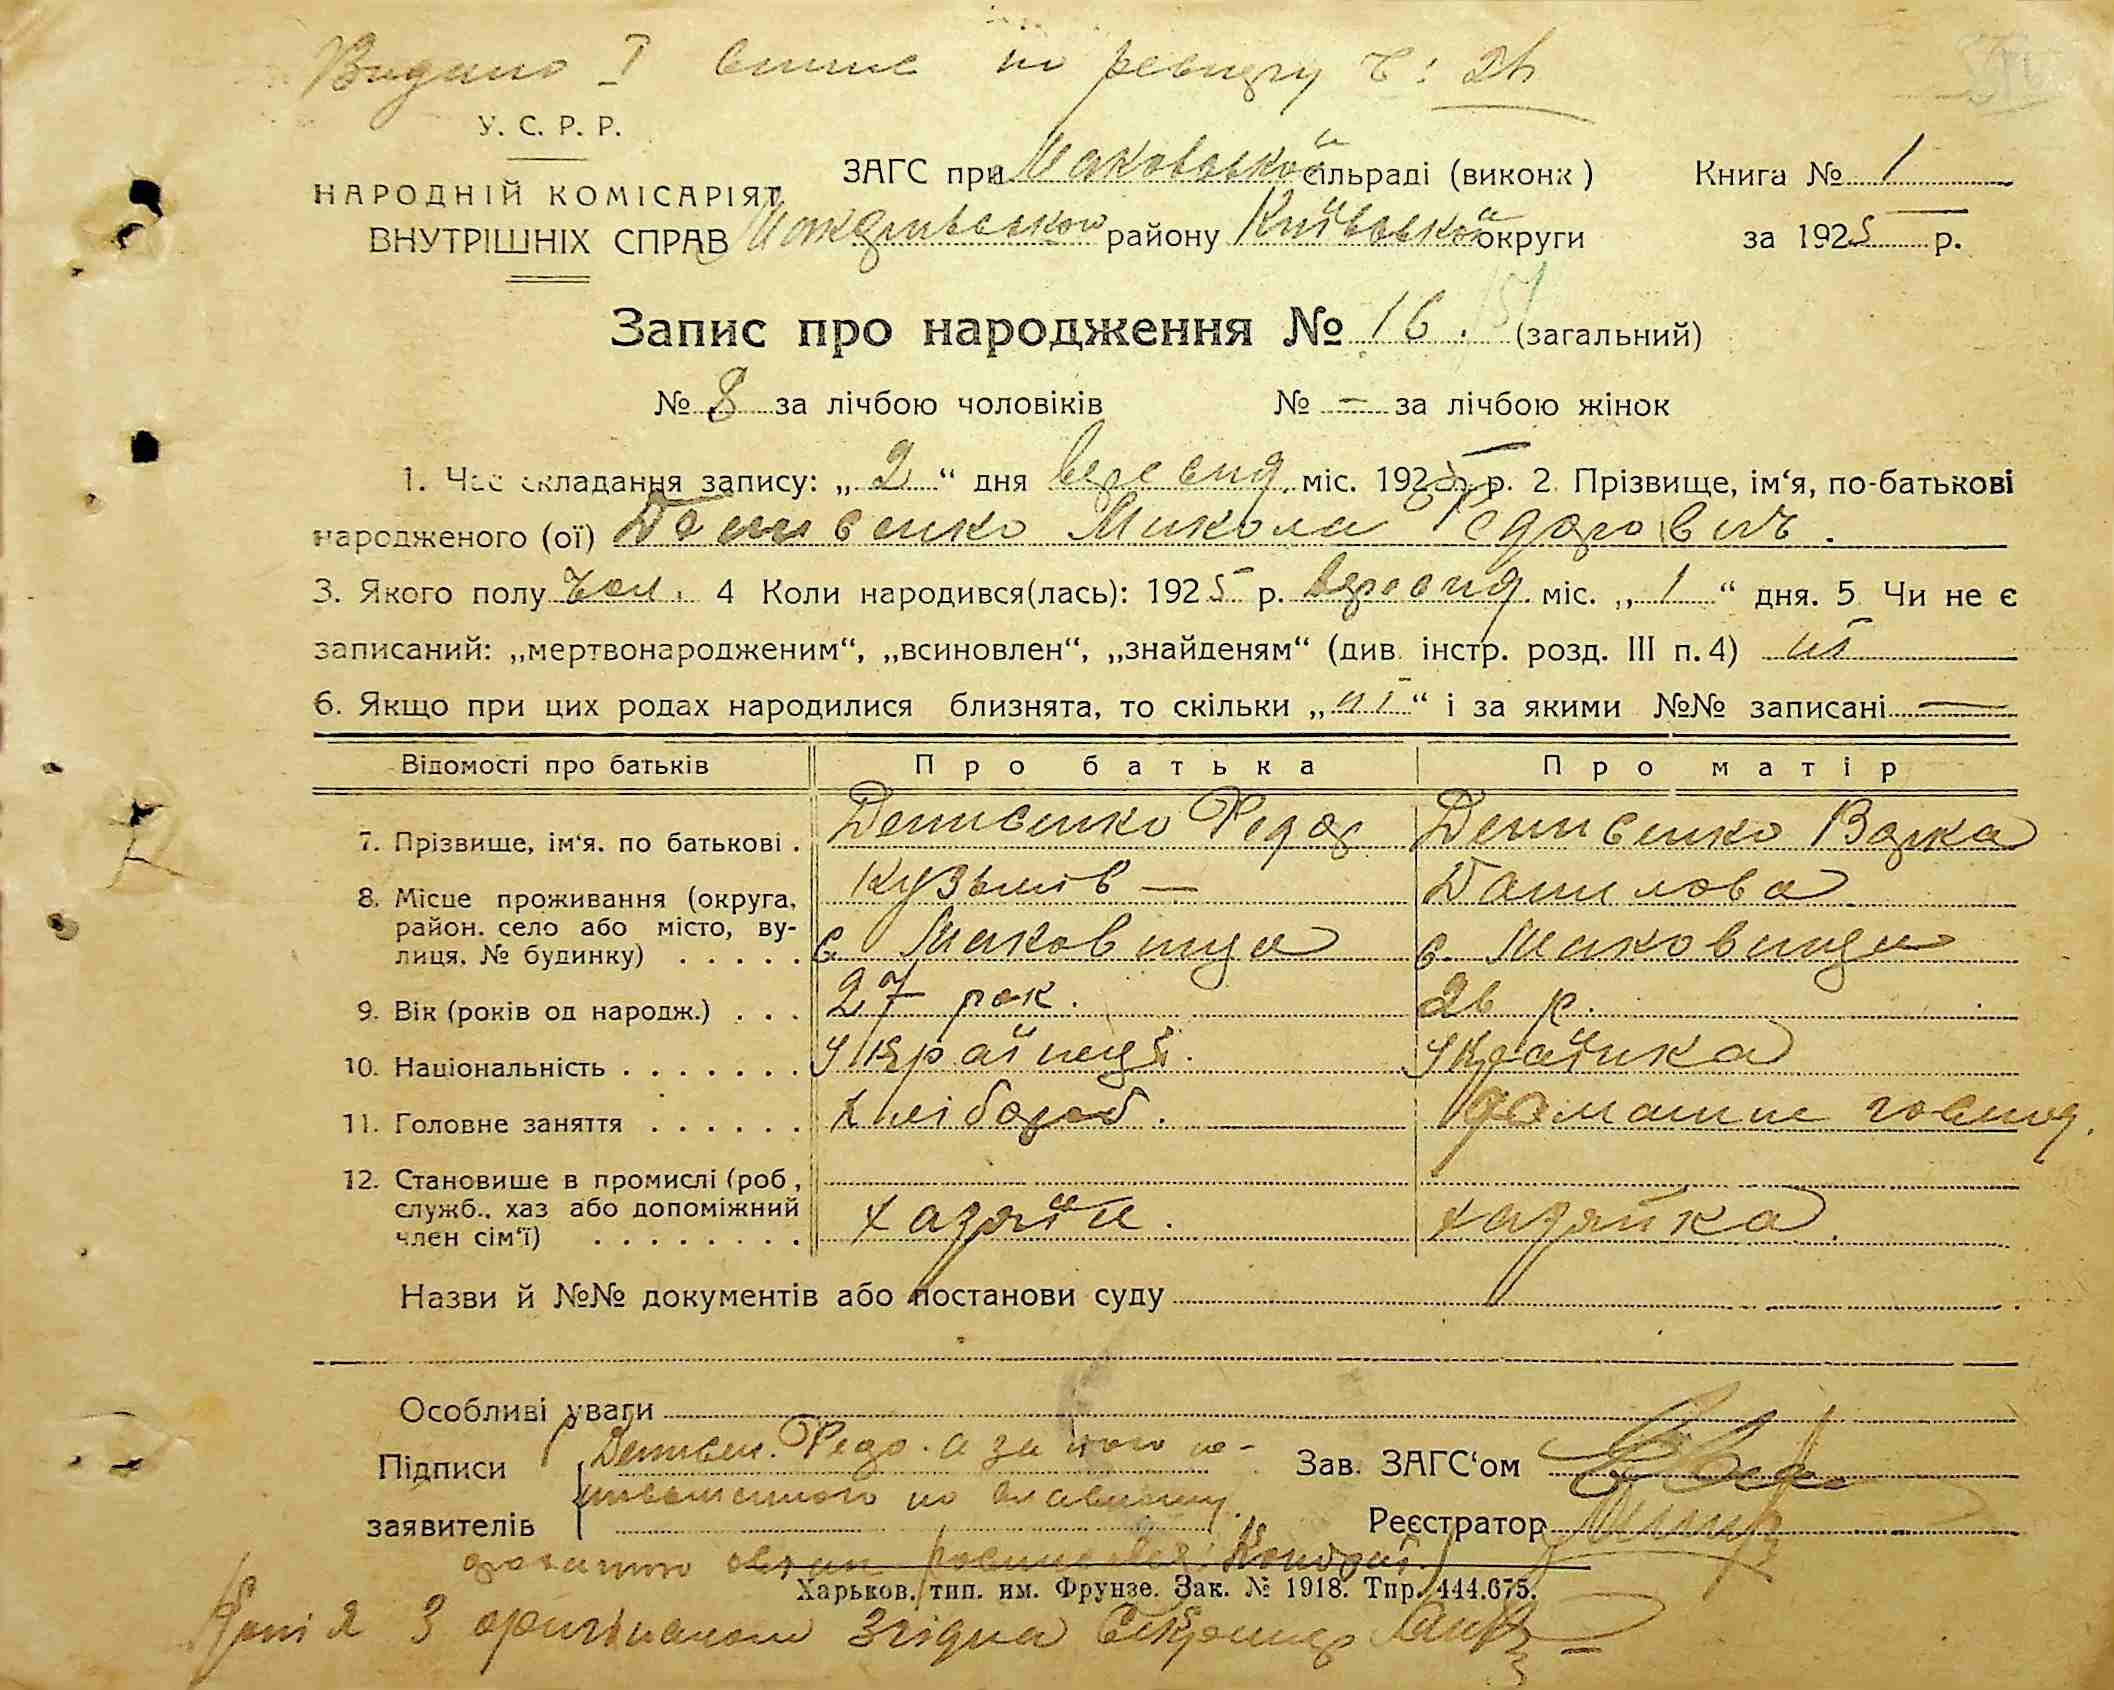 Видано I випис по реєстру ч: 26
У. С. Р. Р.
НАРОДНІЙ КОМІСАРІЯТ
ВНУТРІШНІХ СПРАВ
ЗАГС при Маковської сільраді (виконк)
району Київської округи
Книга № 1
за 1925 р.
Запис про народження № 16. 151 (загальний)
№ 8 за лічбою чоловіків № — за лічбою жінок
1. Час складання запису: „2“ дня вересня міс. 1925 р. 2. Прізвище, ім‘я, по-батькові
народженого (ої) Денисенко Микола Федорович.
3. Якого полу чол. 4 Коли народився(лась): 1925 р. вересня міс. „1“ дня. 5 Чи не є
записаний: „мертвонародженим“, „всиновлен“, „знайденям“ (див. інстр. розд. III п. 4) ні
6. Якщо при цих родах народилися близнята, то скільки „ні“ і за якими №№ записані —
Відомості про батьків Про батька Про матір
7. Прізвище, ім‘я. по батькові . Денисенко Федор Денисенко Варка
Кузьмів — Данилова
8. Місце проживання (округа,
район. село або місто, ву-
лиця. № будинку) . . . . . с. Маковища с. Маковища
9. Вік (років од народж.) . . . 27 рок. 26 р.
10. Національність . . . . . . . Українец. Українка
11. Головне заняття . . . . . . хлібороб. домашнє господ.
12. Становище в промислі (роб.,
служб., хаз або допоміжний
член сім‘ї) . . . . . . . . хазяїн. хазяйка.
Назви й №№ документів або постанови суду
Особливі уваги
Підписи Денисен. Федо. а за його не-
письменного по
заявителів
Зав. ЗАГС‘ом
Реєстратор
Харьков. тип. им. Фрунзе. Зак. № 1918. Тир. 444.675.
Копія з оригіналом згідна Секретар